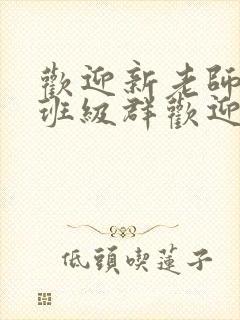 歡迎新老師
班級群歡迎
低頭喫蓮子